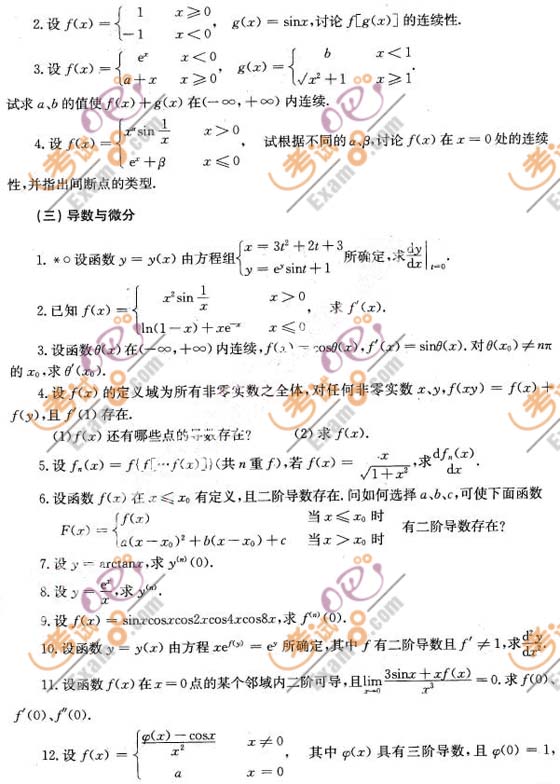 2.设 f(x)={ 1 x≥0, -1 x<0, g(x)=sinx,讨论 f[g(x)]的连续性.
3.设 f(x)={ eˣ x<0, a+x x≥0, g(x)={ b x<1, √(x²+1) x≥1.
试求 a、b 的值使 f(x)+g(x)在(-∞,+∞)内连续.
4.设 f(x)={ x^α sin 1/x x>0, eˣ+β x≤0, 试根据不同的 α、β,讨论 f(x)在 x=0 处的连续
性,并指出间断点的类型.
(三) 导数与微分
1. *○设函数 y=y(x)由方程组{ x=3t²+2t+3, y=e^y sint+1 所确定,求 dy/dx|t=0.
2.已知 f(x)={ x² sin 1/x x>0, ln(1-x)+xe^{-x} x≤0, 求 f′(x).
3.设函数 θ(x)在(-∞,+∞)内连续,f(x)=cosθ(x),f′(x)=sinθ(x).对 θ(x₀)≠nπ
的 x₀,求 θ′(x₀).
4.设 f(x)的定义域为所有非零实数之全体,对任何非零实数 x、y,f(xy)=f(x)+
f(y),且 f′(1)存在.
(1)f(x)还有哪些点的导数存在? (2)求 f(x).
5.设 fₙ(x)=f{f[…f(x)]}(共 n 重 f),若 f(x)= x/√(1+x²),求 dfₙ(x)/dx.
6.设函数 f(x)在 x≤x₀ 有定义,且二阶导数存在.问如何选择 a、b、c,可使下面函数
F(x)={ f(x) 当 x≤x₀ 时, a(x-x₀)²+b(x-x₀)+c 当 x>x₀ 时 有二阶导数存在?
7.设 y=arctanx,求 y⁽ⁿ⁾(0).
8.设 y=eˣ/x,求 y⁽ⁿ⁾.
9.设 f(x)=sinxcosxcos2xcos4xcos8x,求 f⁽ⁿ⁾(0).
10.设函数 y=y(x)由方程 xe^{f(y)}=e^y 所确定,其中 f 有二阶导数且 f′≠1,求 d²y/dx².
11.设函数 f(x)在 x=0 点的某个邻域内二阶可导,且 lim x→0 (3sinx+xf(x))/x³=0.求 f(0)、
f′(0)、f″(0).
12.设 f(x)={ (φ(x)-cosx)/x² x≠0, a x=0, 其中 φ(x)具有三阶导数,且 φ(0)=1,
考试吧
Exam8.com